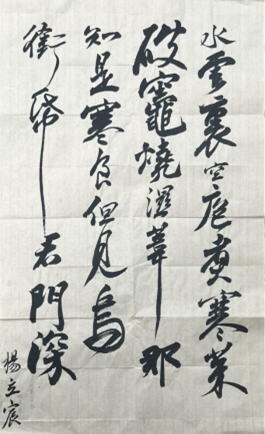 水雲裏空庖煮寒菜
破竈燒濕葦那
知是寒食但見烏
銜帋君門深
楊立宸